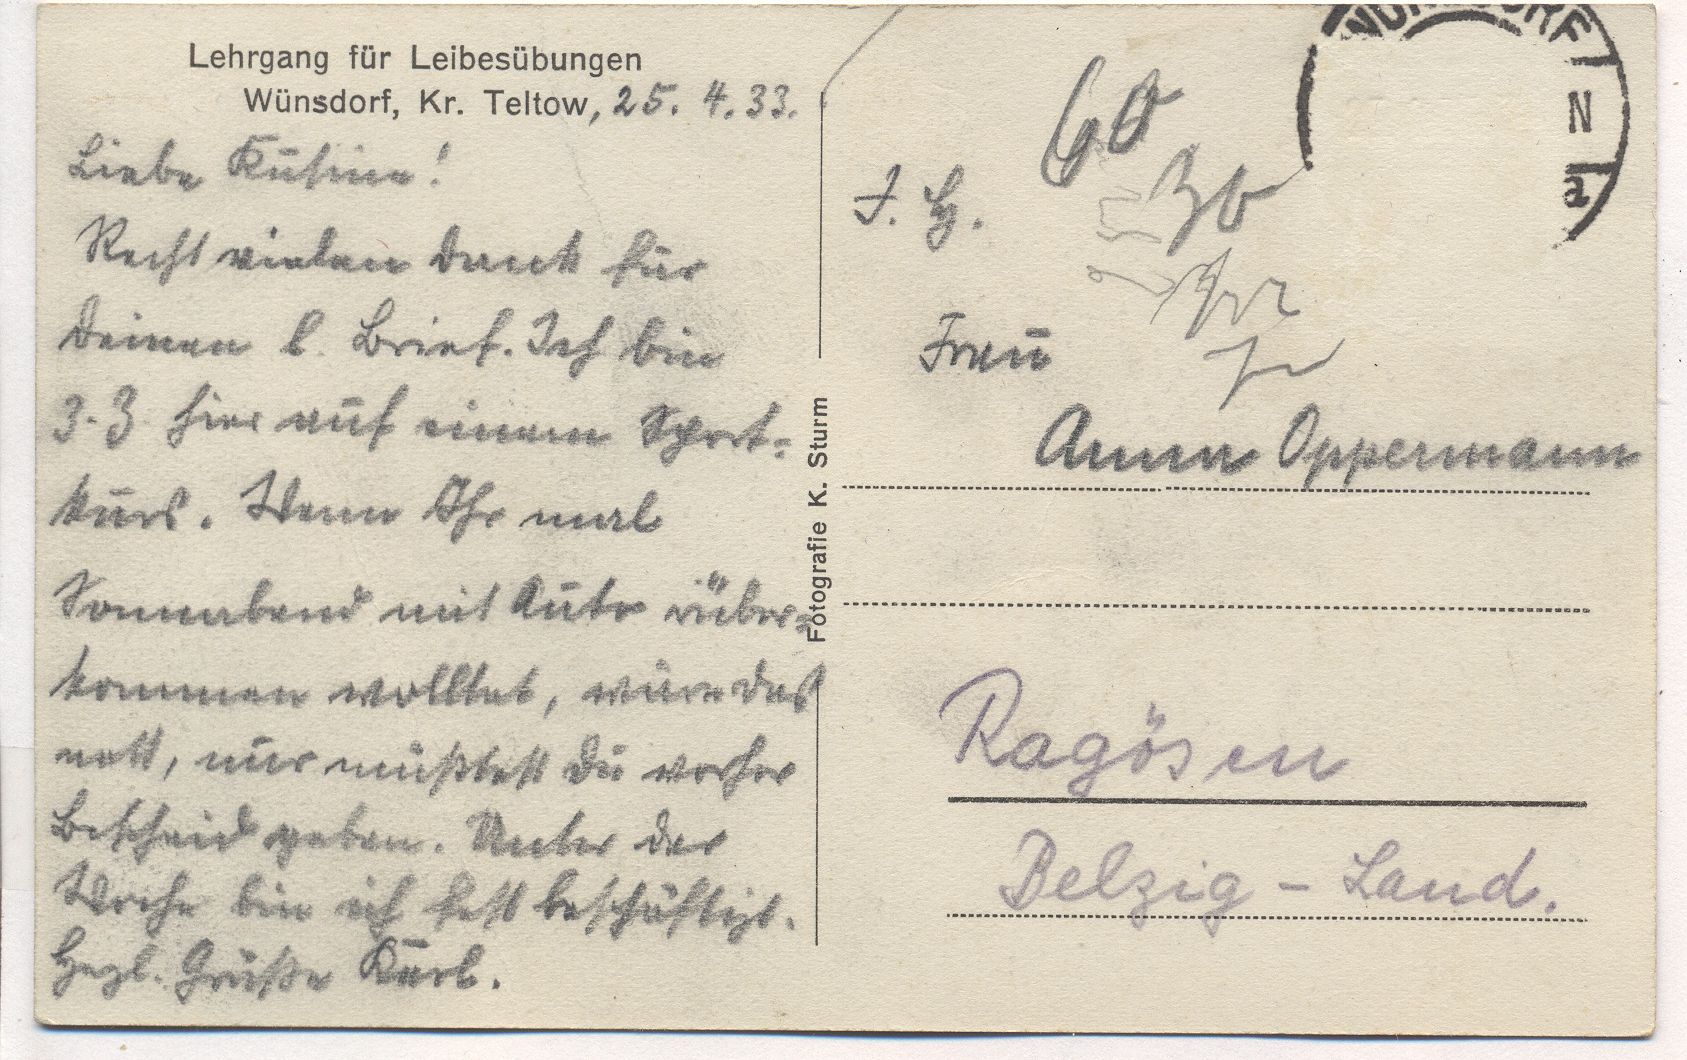 Lehrgang für Leibesübungen
Wünsdorf, Kr. Teltow, 25. 4. 33.
Liebe Kusine!
Recht vielen Dank für
Deinen l. Brief. Ich bin
z. Z. hier auf einem Sport-
kurs. Wenn Ihr mal
Sonnabend mit Auto rüber-
kommen wolltet, wäre das
nett, nur müßtest Du vorher
Bescheid geben. Unter der
Woche bin ich fest beschäftigt.
Herzl. Grüße Karl.
Fotografie K. Sturm
WÜNSDORF
N
a
60
Frau
Anna Oppermann
Ragösen
Belzig - Land.